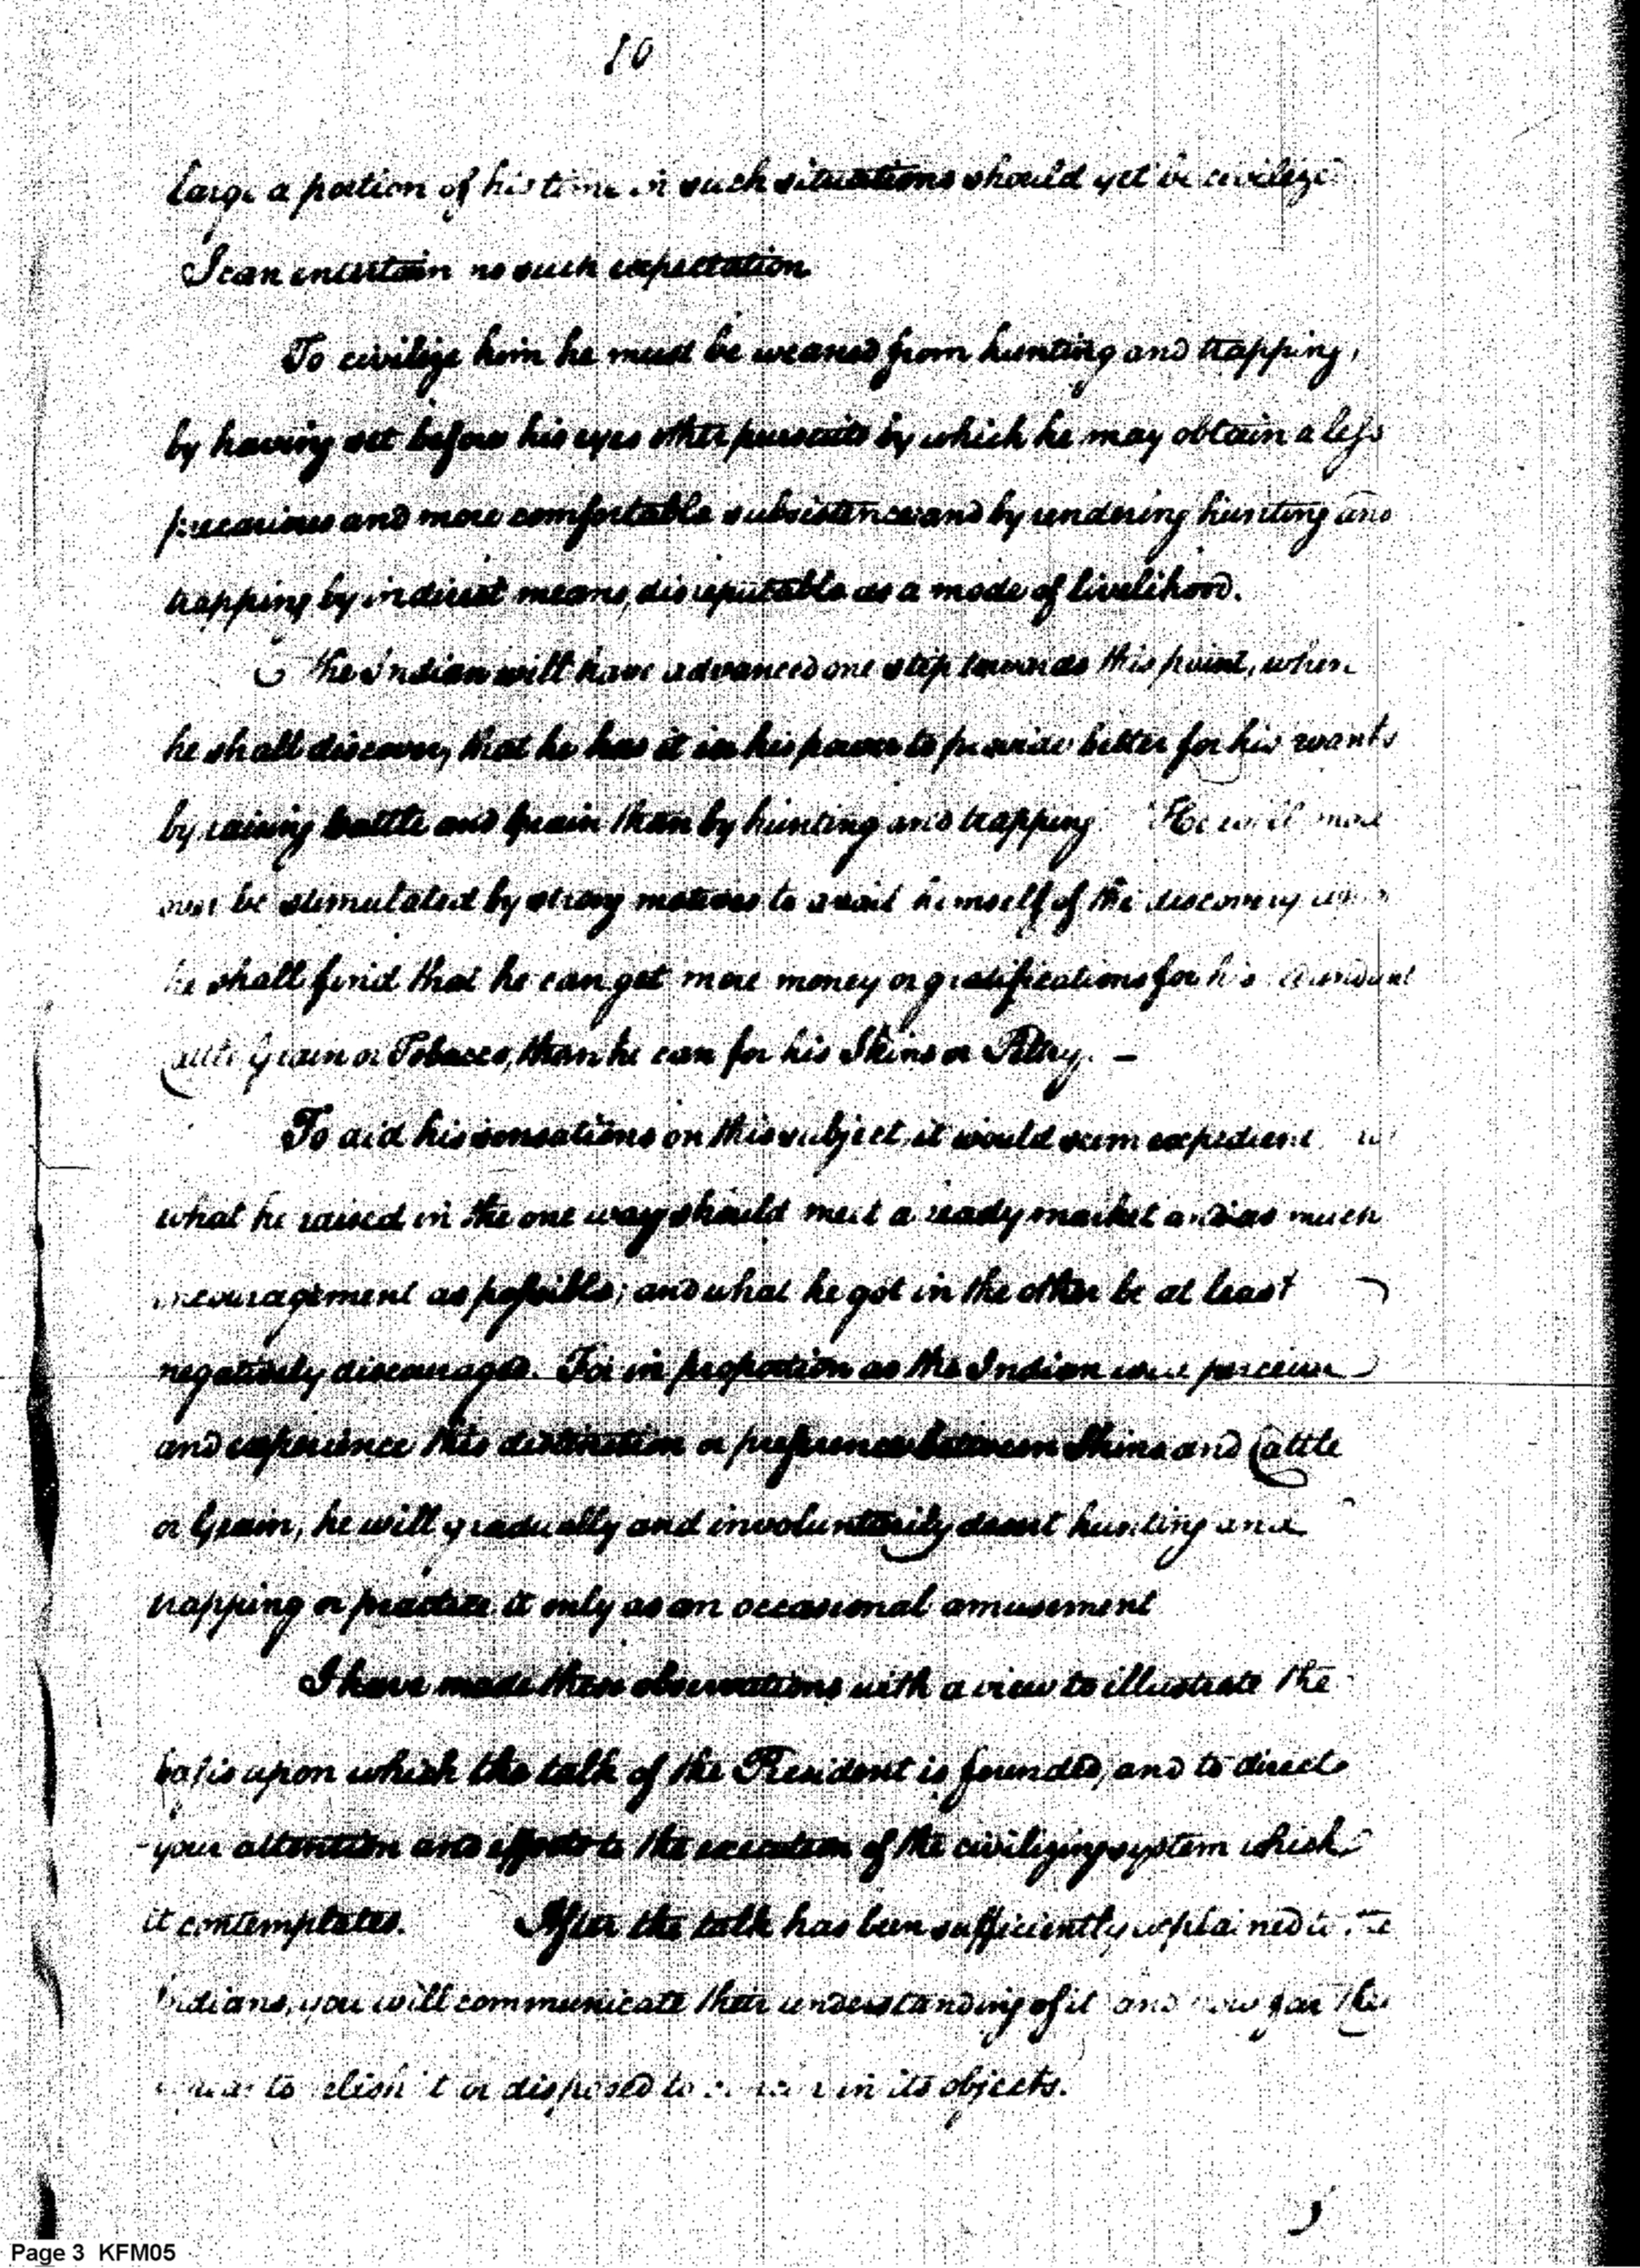 10
large a portion of his time in such situations should yet be civilize
I can entertain no such expectation
To civilize him he must be weaned from hunting and trapping,
by having set before his eyes other pursuits by which he may obtain a less
precarious and more comfortable subsistence and by rendering hunting and
trapping by indirect means, disreputable as a mode of livelihood.
The Indian will have advanced one step towards this point, when
he shall discover, that he has it in his power to provide better for his wants
by raising Cattle and Grain than by hunting and trapping. He will more
over be stimulated by strong motives to avail himself of the discovery when
he shall find that he can get more money or gratifications for his abundant
Cattle Grain or Tobacco, than he can for his Skins or Peltry. —
To aid his sensations on this subject, it would seem expedient
what he raised in the one way should meet a ready market and as much
encouragement as possible; and what he got in the other be at least
negatively discouraged. For in proportion as the Indian will perceive
and experience this distinction or preference between Skins and Cattle
or Grain, he will gradually and involuntarily desert hunting and
trapping or practice it only as an occasional amusement
I have made these observations with a view to illustrate the
basis upon which the talk of the President is founded, and to direct
your attention and efforts to the execution of the civilizing system which
it contemplates. After the talk has been sufficiently explained to the
Indians, you will communicate their understanding of it and how far they
to relish it or disposed to in its objects.
Page 3 KFM05